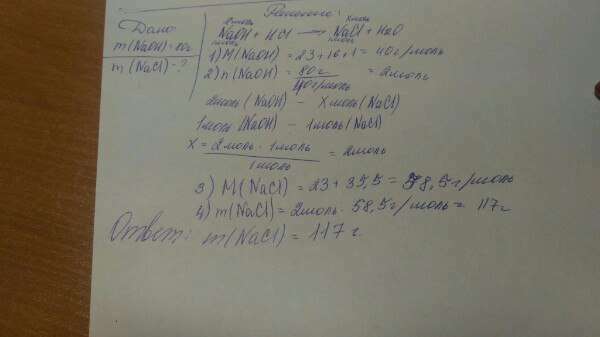 Дано
m(NaOH)=80г
m(NaCl)-?
Решение:
2моль xмоль
NaOH + HCl → NaCl + H2O
1моль 1моль
1) M(NaOH) = 23+16+1 = 40г/моль
2) n(NaOH) = 80г / 40г/моль = 2моль
2моль (NaOH) - Xмоль(NaCl)
1моль (NaOH) - 1моль(NaCl)
X = 2моль · 1моль / 1моль = 2моль
3) M(NaCl) = 23+35,5 = 58,5г/моль
4) m(NaCl) = 2моль · 58,5г/моль = 117г
Ответ: m(NaCl) = 117г.